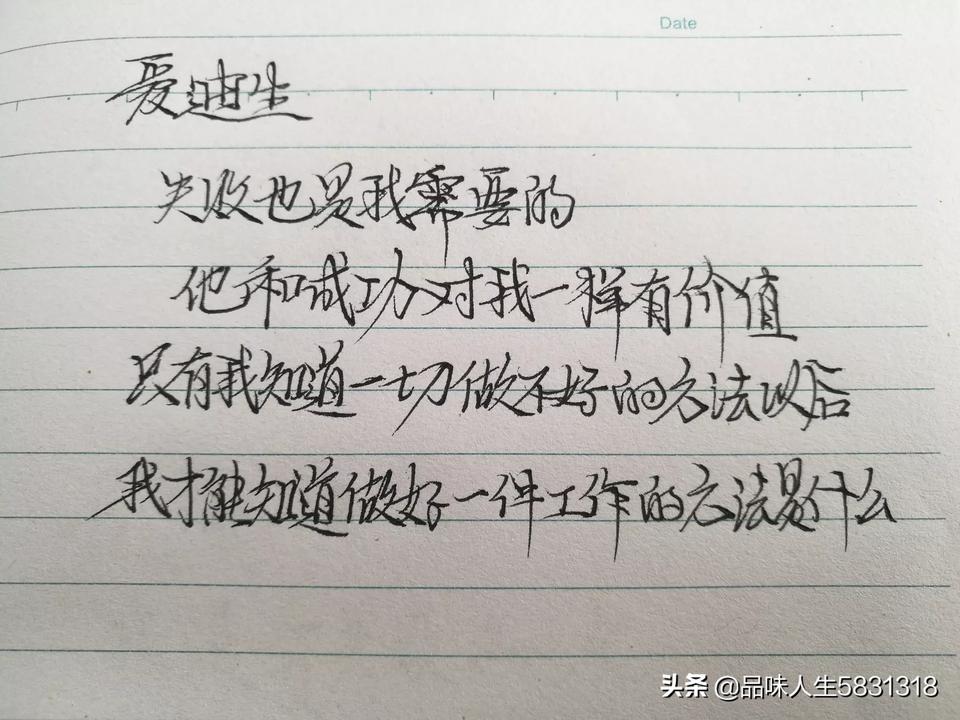 Date
爱迪生
失败也是我需要的
他和成功对我一样有价值
只有我知道一切做不好的方法以后
我才能知道做好一件工作的方法是什么
头条 @品味人生5831318